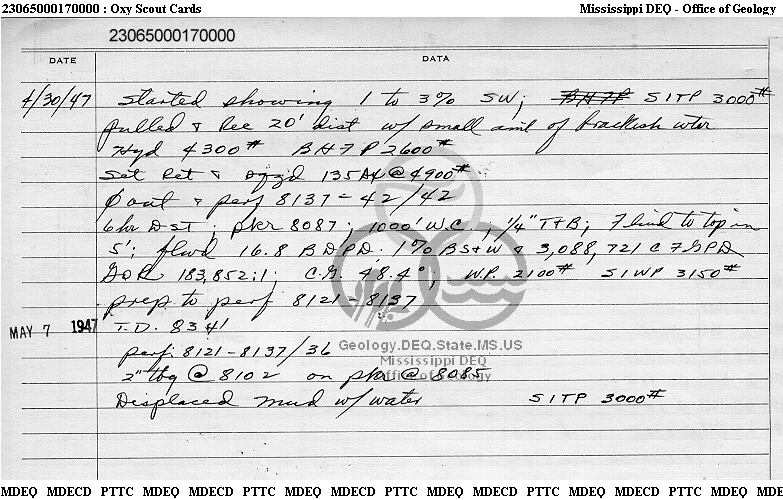 23065000170000 : Oxy Scout Cards Mississippi DEQ - Office of Geology
23065000170000
DATE DATA
4/30/47 Started showing 1 to 3% SW; BHFP SITP 3000#
pulled & Rec 20' dist w/ small amt of brackish wter
Hyd 4300# BHFP 2600#
Set Ret & sqzd 135 sx @ 4900#
C out & perf 8137-42/42
6 hr DST; pkr 8087; 1000' W.C.; 1/4" T&B; Fluid to top in
5'; flwd 16.8 BDPD. 1% BS&W & 3,088,721 CFGPD
GOR 183,852:1; C.G. 48.4°; W.P. 2100# SIWP 3150#
prep to perf 8121-8137
MAY 7 1947 T.D. 8341
perf: 8121-8137/36
2" tbg @ 8102 on pkr @ 8085
Displaced mud w/ water SITP 3000#
Geology.DEQ.State.MS.US
Mississippi DEQ
Office of Geology
MDEQ MDECD PTTC MDEQ MDECD PTTC MDEQ MDECD PTTC MDEQ MDECD PTTC MDEQ MDECD PTTC MDEQ MDE